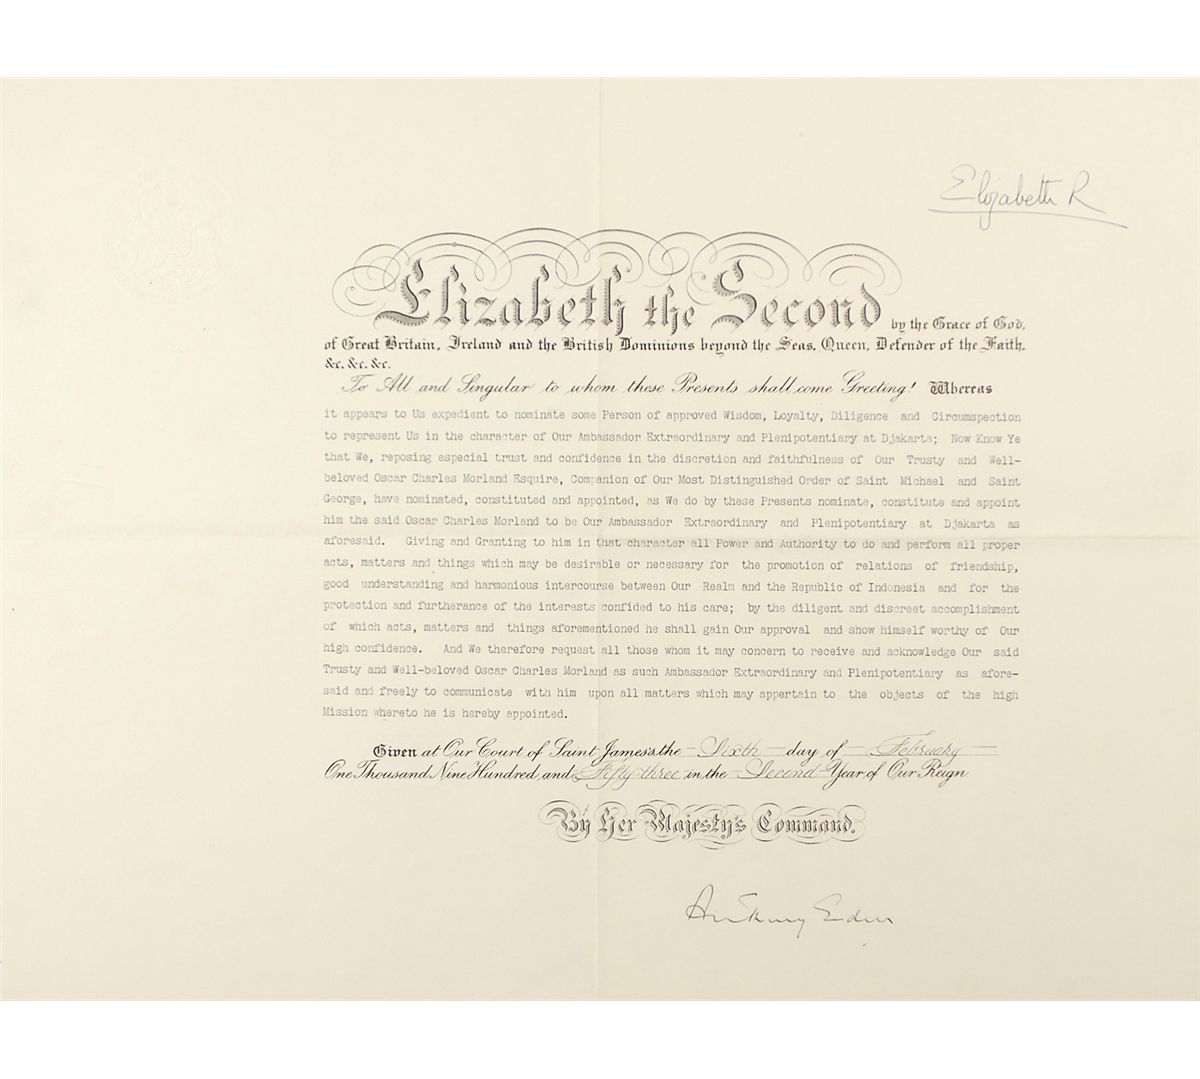 Elizabeth R
Elizabeth the Second by the Grace of God,
of Great Britain, Ireland and the British Dominions beyond the Seas, Queen, Defender of the Faith,
&c. &c. &c.
To All and Singular to whom these Presents shall come Greeting! Whereas
it appears to Us expedient to nominate some Person of approved Wisdom, Loyalty, Diligence and Circumspection
to represent Us in the character of Our Ambassador Extraordinary and Plenipotentiary at Djakarta; Now Know Ye
that We, reposing especial trust and confidence in the discretion and faithfulness of Our Trusty and Well-
beloved Oscar Charles Morland Esquire, Companion of Our Most Distinguished Order of Saint Michael and Saint
George, have nominated, constituted and appointed, as We do by these Presents nominate, constitute and appoint
him the said Oscar Charles Morland to be Our Ambassador Extraordinary and Plenipotentiary at Djakarta as
aforesaid. Giving and Granting to him in that character all Power and Authority to do and perform all proper
acts, matters and things which may be desirable or necessary for the promotion of relations of friendship,
good understanding and harmonious intercourse between Our Realm and the Republic of Indonesia and for the
protection and furtherance of the interests confided to his care; by the diligent and discreet accomplishment
of which acts, matters and things aforementioned he shall gain Our approval and show himself worthy of Our
high confidence. And We therefore request all those whom it may concern to receive and acknowledge Our said
Trusty and Well-beloved Oscar Charles Morland as such Ambassador Extraordinary and Plenipotentiary as afore-
said and freely to communicate with him upon all matters which may appertain to the objects of the high
Mission whereto he is hereby appointed.
Given at Our Court of Saint James's the - Sixth - day of - February -
One Thousand Nine Hundred and - Fifty-three in the - Second - Year of Our Reign
By Her Majesty's Command.
Anthony Eden